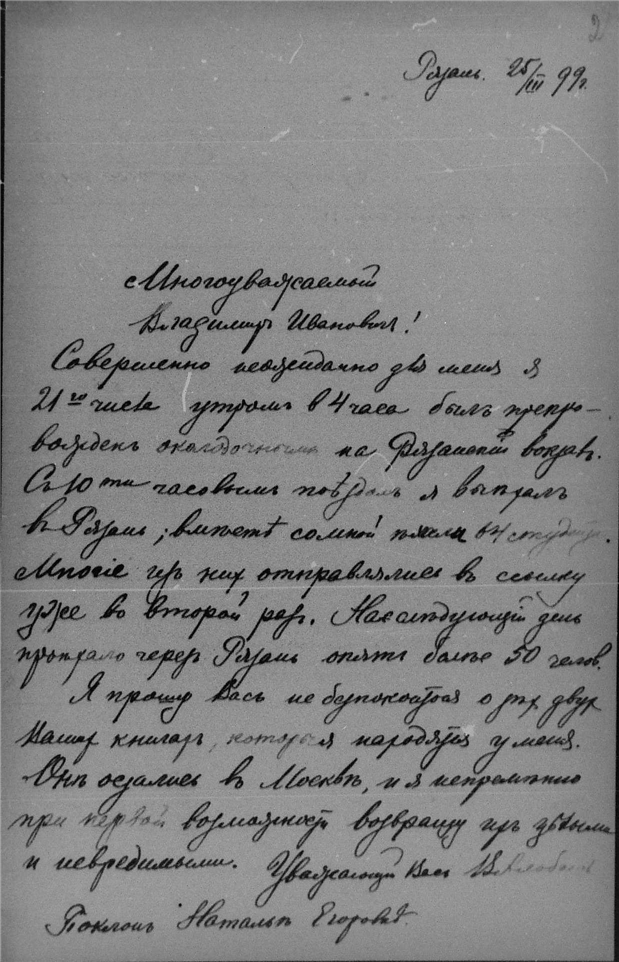 2
Рязань. 25/III 99 г.
Многоуважаемый
Владимиръ Ивановичъ!
Совершенно неожиданно для меня я
21го числа утромъ в 4 часа былъ препро-
вожденъ околодочнымъ на Рязанскій вокзалъ.
Съ 10ти часовымъ поѣздомъ я выѣхалъ
въ Рязань; вмѣстѣ со мной ѣхали 64 студента.
Многіе изъ них отправлялись въ ссылку
уже во второй разъ. На слѣдующій день
проѣхало черезъ Рязань опять болѣе 50 челов.
Я прошу Васъ не безпокоиться о тѣх двух
Вашихъ книгахъ, которыя находятся у меня.
Онѣ остались въ Москвѣ, и я непремѣнно
при первой возможности возвращу ихъ цѣлыми
и невредимыми. Уважающій Васъ
Поклонъ Натальѣ Егоровнѣ.